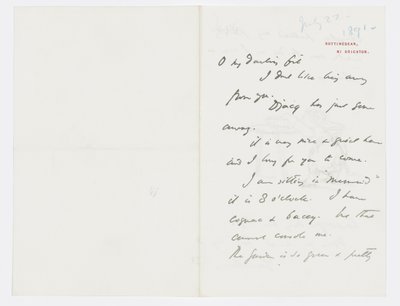 July 27
1891
ROTTINGDEAN,
Nr BRIGHTON.
O my darling
I dont like being away
from you.
has just gone
away.
it is very nice & quiet here
and I long for you to come.
I am sitting in "mermaid"
it is 8 o'clock. I have
cognac & baccy. but that
cannot console me.
The garden is so green & pretty